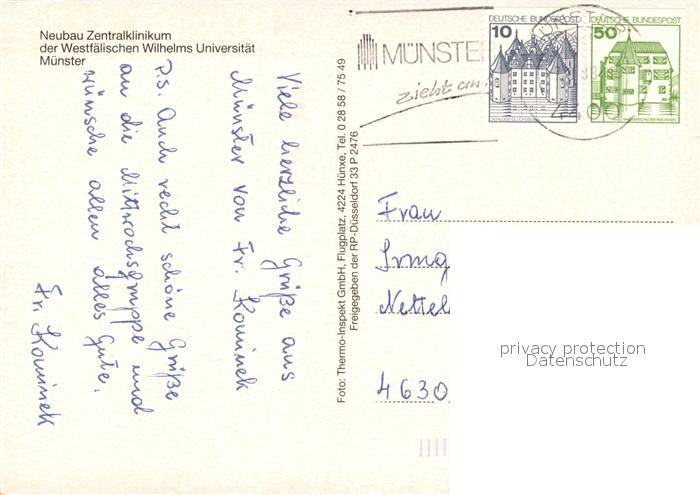 Neubau Zentralklinikum
der Westfälischen Wilhelms Universität
Münster
Viele herzliche Grüße aus
Münster von Fr. Kominek
P.s. Auch recht schöne Grüße
an die Mittwochsgruppe und
wünsche allen alles Gute.
Fr. Kominek
Foto: Thermo-Inspekt GmbH, Flugplatz, 4224 Hünxe, Tel. 0 28 58 / 75 49
Freigegeben der RP-Düsseldorf 33 P 2476
MÜNSTER
zieht an
10
DEUTSCHE BUNDESPOST
50
DEUTSCHE BUNDESPOST
4400
Frau
Irmg
Nettel
4630
privacy protection
Datenschutz